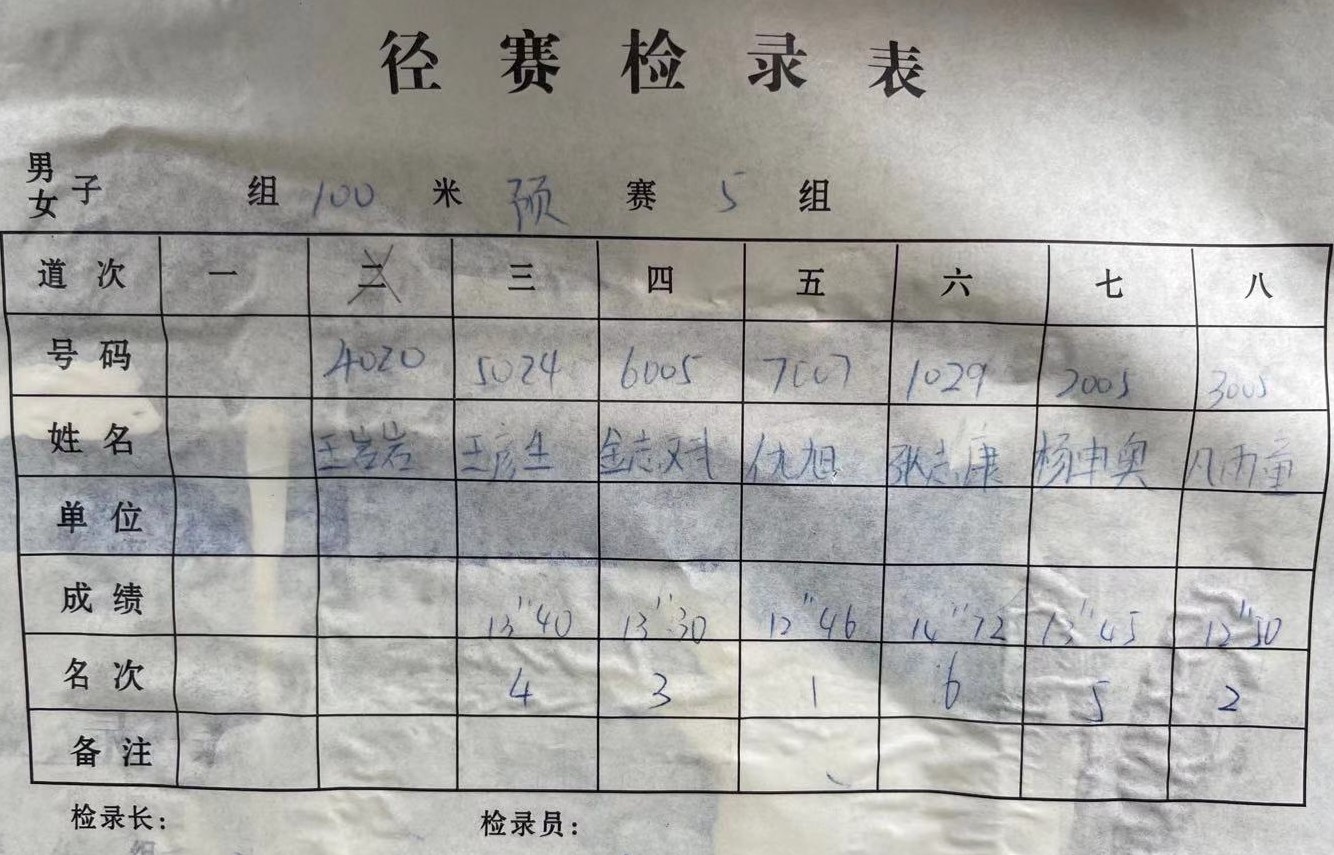 径赛检录表
男女子 组 100 米 预 赛 5 组
道次 一 二 三 四 五 六 七 八
号码 4020 5024 6005 7007 1029 2005 3005
姓名 王岩岩 王彦生 金志斌 仇旭 张志康 杨申奥 凡雨童
单位
成绩 13"40 13"30 12"46 14"72 13"45 12"50
名次 4 3 1 6 5 2
备注
检录长： 检录员：